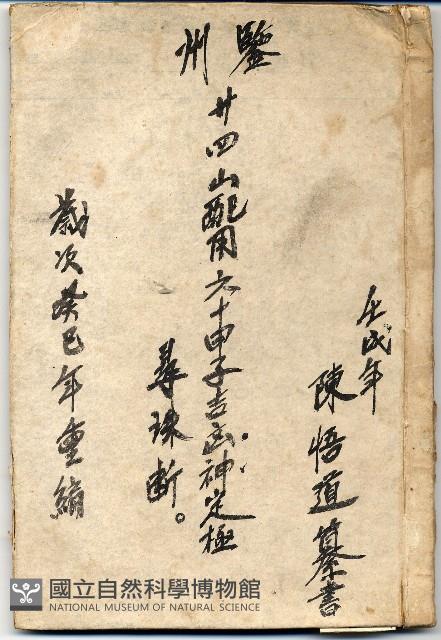 鑒州
壬戌年
陳悟道纂書
廿四山配用六十甲子吉凶神定極
尋珠斷。
歲次癸巳年重編
國立自然科學博物館
NATIONAL MUSEUM OF NATURAL SCIENCE